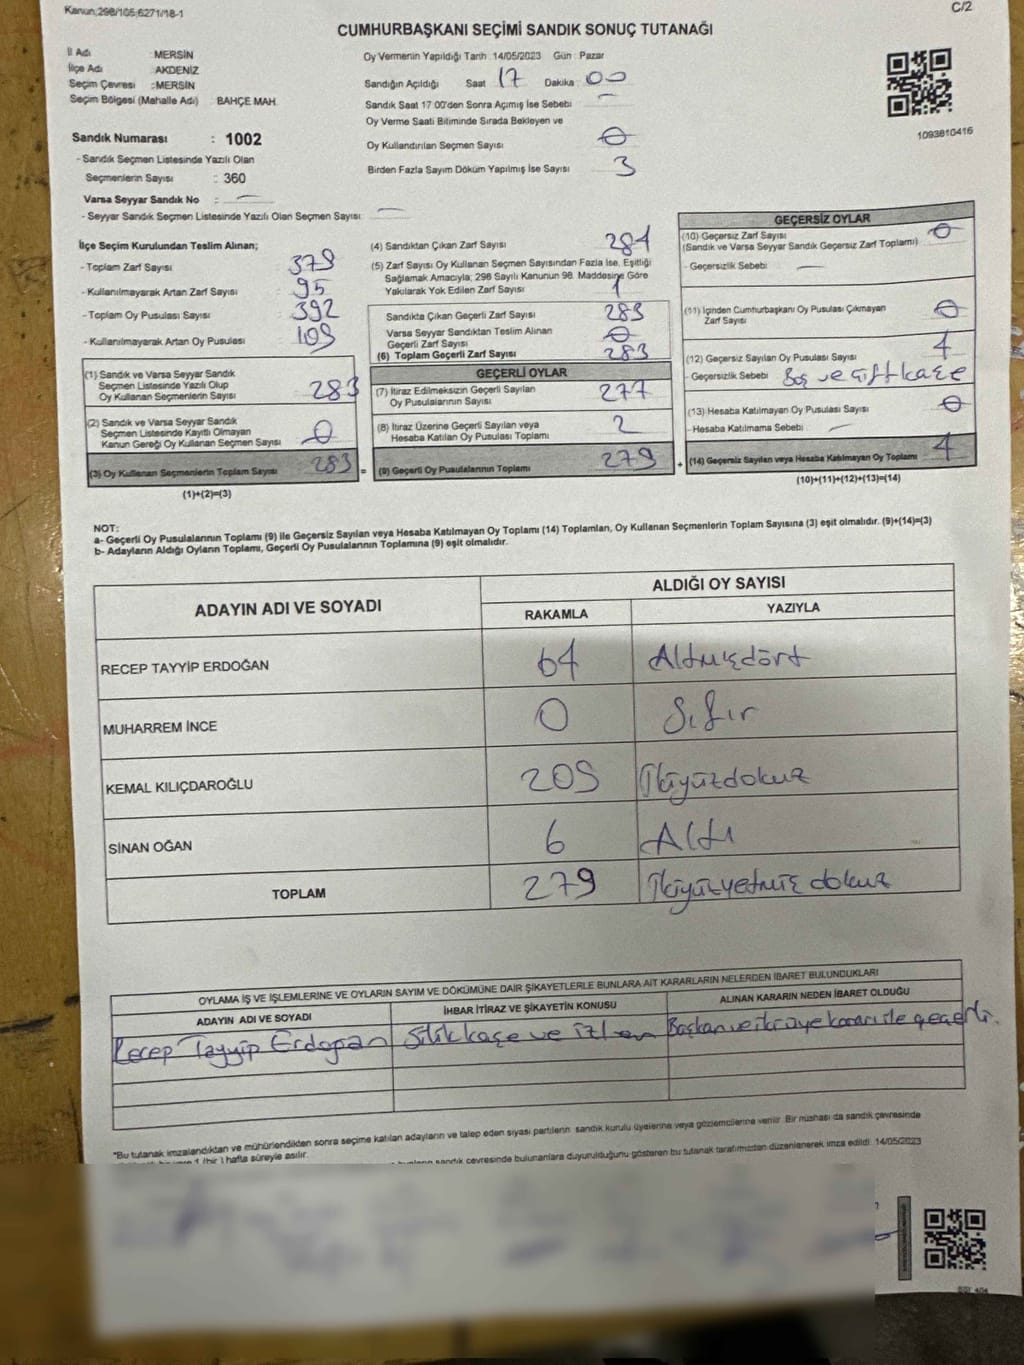 Kanun:298/105;6271/18-1
C/2
CUMHURBAŞKANI SEÇİMİ SANDIK SONUÇ TUTANAĞI
İl Adı : MERSİN
İlçe Adı : AKDENİZ
Seçim Çevresi : MERSİN
Seçim Bölgesi (Mahalle Adı) : BAHÇE MAH.
Sandık Numarası : 1002
- Sandık Seçmen Listesinde Yazılı Olan
Seçmenlerin Sayısı : 360
Varsa Seyyar Sandık No : —
- Seyyar Sandık Seçmen Listesinde Yazılı Olan Seçmen Sayısı: —
Oy Vermenin Yapıldığı Tarih :14/05/2023 Gün : Pazar
Sandığın Açıldığı Saat 17 Dakika : 00
Sandık Saat 17:00'den Sonra Açımış İse Sebebi : —
Oy Verme Saati Bitiminde Sırada Bekleyen ve
Oy Kullandırılan Seçmen Sayısı : 0
Birden Fazla Sayım Döküm Yapılmış İse Sayısı : 3
1093810416
İlçe Seçim Kurulundan Teslim Alınan;
- Toplam Zarf Sayısı : 379
- Kullanılmayarak Artan Zarf Sayısı : 95
- Toplam Oy Pusulası Sayısı : 392
- Kullanılmayarak Artan Oy Pusulası : 109
(1) Sandık ve Varsa Seyyar Sandık
Seçmen Listesinde Yazılı Olup
Oy Kullanan Seçmenlerin Sayısı 283
(2) Sandık ve Varsa Seyyar Sandık
Seçmen Listesinde Kayıtlı Olmayan
Kanun Gereği Oy Kullanan Seçmen Sayısı 0
(3) Oy Kullanan Seçmenlerin Toplam Sayısı 283 =
(1)+(2)=(3)
(4) Sandıktan Çıkan Zarf Sayısı 284
(5) Zarf Sayısı Oy Kullanan Seçmen Sayısından Fazla İse, Eşitliği
Sağlamak Amacıyla; 298 Sayılı Kanunun 98. Maddesine Göre
Yakılarak Yok Edilen Zarf Sayısı 1
Sandıkta Çıkan Geçerli Zarf Sayısı 283
Varsa Seyyar Sandıktan Teslim Alınan
Geçerli Zarf Sayısı 0
(6) Toplam Geçerli Zarf Sayısı 283
GEÇERLİ OYLAR
(7) İtiraz Edilmeksizin Geçerli Sayılan
Oy Pusulalarının Sayısı 277
(8) İtiraz Üzerine Geçerli Sayılan veya
Hesaba Katılan Oy Pusulası Toplamı 2
(9) Geçerli Oy Pusulalarının Toplamı 279 +
GEÇERSİZ OYLAR
(10) Geçersiz Zarf Sayısı 0
(Sandık ve Varsa Seyyar Sandık Geçersiz Zarf Toplamı)
- Geçersizlik Sebebi : —
(11) İçinden Cumhurbaşkanı Oy Pusulası Çıkmayan
Zarf Sayısı 0
(12) Geçersiz Sayılan Oy Pusulası Sayısı 4
- Geçersizlik Sebebi : Boş ve çift kaşe
(13) Hesaba Katılmayan Oy Pusulası Sayısı 0
- Hesaba Katılmama Sebebi : —
(14) Geçersiz Sayılan veya Hesaba Katılmayan Oy Toplamı 4
(10)+(11)+(12)+(13)=(14)
NOT:
a- Geçerli Oy Pusulalarının Toplamı (9) ile Geçersiz Sayılan veya Hesaba Katılmayan Oy Toplamı (14) Toplamları, Oy Kullanan Seçmenlerin Toplam Sayısına (3) eşit olmalıdır. (9)+(14)=(3)
b- Adayların Aldığı Oyların Toplamı, Geçerli Oy Pusulalarının Toplamına (9) eşit olmalıdır.
ADAYIN ADI VE SOYADI
ALDIĞI OY SAYISI
RAKAMLA YAZIYLA
RECEP TAYYİP ERDOĞAN 64 Altmışdört
MUHARREM İNCE 0 Sıfır
KEMAL KILIÇDAROĞLU 209 İkiyüzdokuz
SİNAN OĞAN 6 Altı
TOPLAM 279 İkiyüzyetmiş dokuz
OYLAMA İŞ VE İŞLEMLERİNE VE OYLARIN SAYIM VE DÖKÜMÜNE DAİR ŞİKAYETLERLE BUNLARA AİT KARARLARIN NELERDEN İBARET BULUNDUKLARI
ADAYIN ADI VE SOYADI İHBAR İTİRAZ VE ŞİKAYETİN KONUSU ALINAN KARARIN NEDEN İBARET OLDUĞU
Recep Tayyip Erdoğan Silik kaşe ve Başkan ve iki üye kararı ile geçerli.
"Bu tutanak imzalandıktan ve mühürlendikten sonra seçime katılan adayların ve talep eden siyasi partilerin sandık kurulu üyelerine veya gözlemcilerine verilir. Bir nüshası da sandık çevresinde
1 (bir ) hafta süreyle asılır.
sandık çevresinde bulunanlara duyurulduğunu gösteren bu tutanak tarafımızdan düzenlenerek imza edildi. 14/05/2023